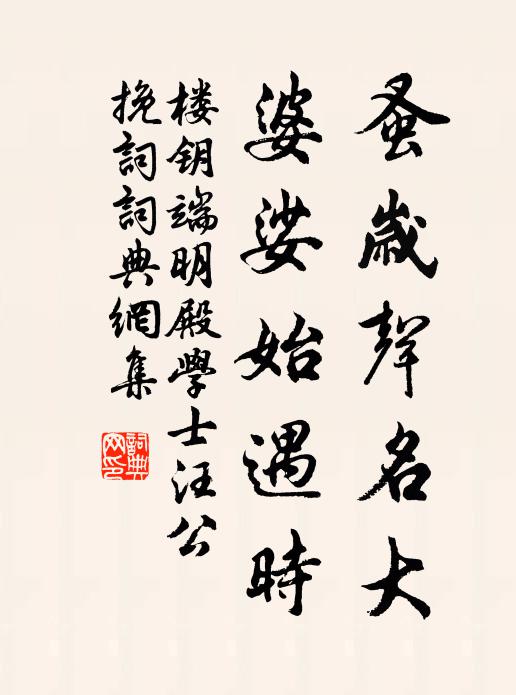 蚤歲聲名大
婆娑始遇時
楼钥端明殿學士汪公
挽詞詞典網集
詞典网印